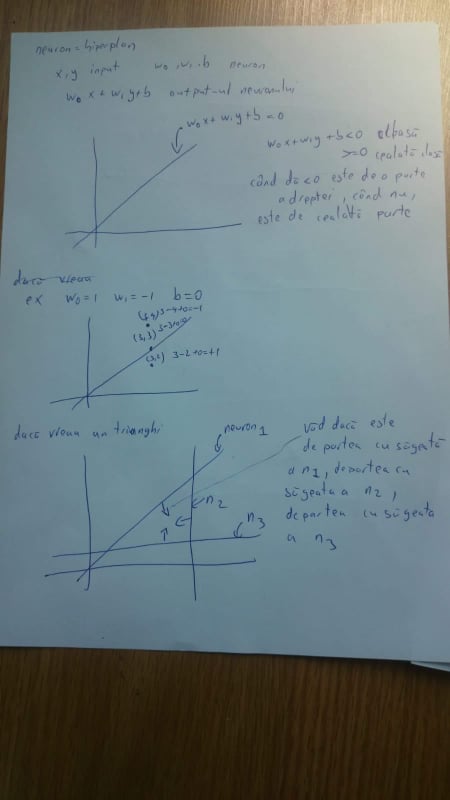 neuron = hiperplan
x, y input w₀, w₁, b neuron
w₀x + w₁y + b output-ul neuronului
w₀x + w₁y + b = 0
w₀x + w₁y + b < 0 o clasă
>= 0 cealaltă clasă
când dă < 0 este de o parte
a dreptei, când nu,
este de cealaltă parte
dacă vreau
ex w₀ = 1 w₁ = -1 b = 0
3-4+0=-1
(3,3) 3-3+0=0
3-2+0=+1
dacă vreau un triunghi
neuron 1
n2
n3
văd dacă este
de partea cu săgeată
a n1, de partea cu
săgeata a n2,
de partea cu săgeata
a n3